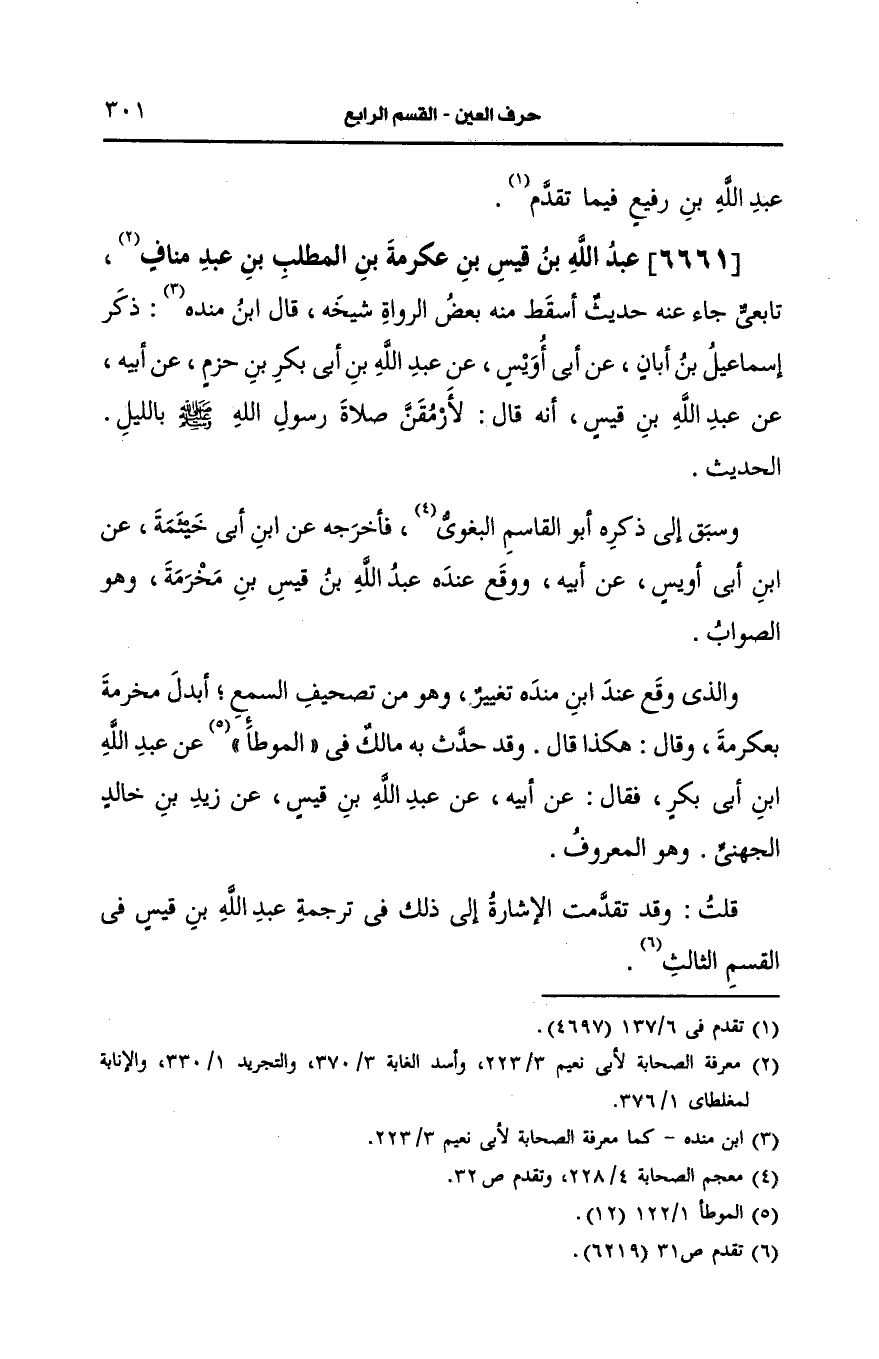 حرف العين - القسم الرابع ٣٠١
عبدِ اللَّهِ بنِ رفيعٍ فيما تقدَّم(١) .
[٦٦٦١] عبدُ اللَّهِ بنُ قيسِ بنِ عكرمةَ بنِ المطلبِ بنِ عبدِ منافٍ(٢) ،
تابعىٌّ جاء عنه حديثٌ أسقَط منه بعضُ الرواةِ شيخَه ، قال ابنُ منده(٣) : ذكَر
إسماعيلُ بنُ أبانٍ ، عن أبى أُوَيْسٍ ، عن عبدِ اللَّهِ بنِ أبى بكرِ بنِ حزمٍ ، عن أبيه ،
عن عبدِ اللَّهِ بنِ قيسٍ ، أنه قال : لأَرْمُقَنَّ صلاةَ رسولِ اللهِ ﷺ بالليلِ .
الحديث .
وسبَق إلى ذكرِه أبو القاسمِ البغوىُّ(٤) ، فأخرَجه عن ابنِ أبى خَيْثَمَةَ ، عن
ابنِ أبى أويسٍ ، عن أبيه ، ووقَع عندَه عبدُ اللَّهِ بنُ قيسِ بنِ مَخْرَمَةَ ، وهو
الصوابُ .
والذى وقَع عندَ ابنِ مندَه تغييرٌ ، وهو من تصحيفِ السمعِ ؛ أبدلَ مخرمةَ
بعكرمةَ ، وقال : هكذا قال . وقد حدَّث به مالكٌ فى « الموطأِ »(٥) عن عبدِ اللَّهِ
ابنِ أبى بكرٍ ، فقال : عن أبيه ، عن عبدِ اللَّهِ بنِ قيسٍ ، عن زيدِ بنِ خالدٍ
الجهنىِّ . وهو المعروفُ .
قلتُ : وقد تقدَّمت الإشارةُ إلى ذلك فى ترجمةِ عبدِ اللَّهِ بنِ قيسٍ فى
القسمِ الثالثِ(٦) .
(١) تقدم فى ١٣٧/٦ (٤٦٩٧).
(٢) معرفة الصحابة لأبى نعيم ٢٢٣/٣، وأسد الغابة ٣٧٠/٣، والتجريد ٣٣٠/١، والإنابة
لمغلطاى ٣٧٦/١.
(٣) ابن منده - كما معرفة الصحابة لأبى نعيم ٢٢٣/٣.
(٤) معجم الصحابة ٢٢٨/٤، وتقدم ص٣٢.
(٥) الموطأ ١٢٢/١ (١٢).
(٦) تقدم ص٣١ (٦٢١٩).